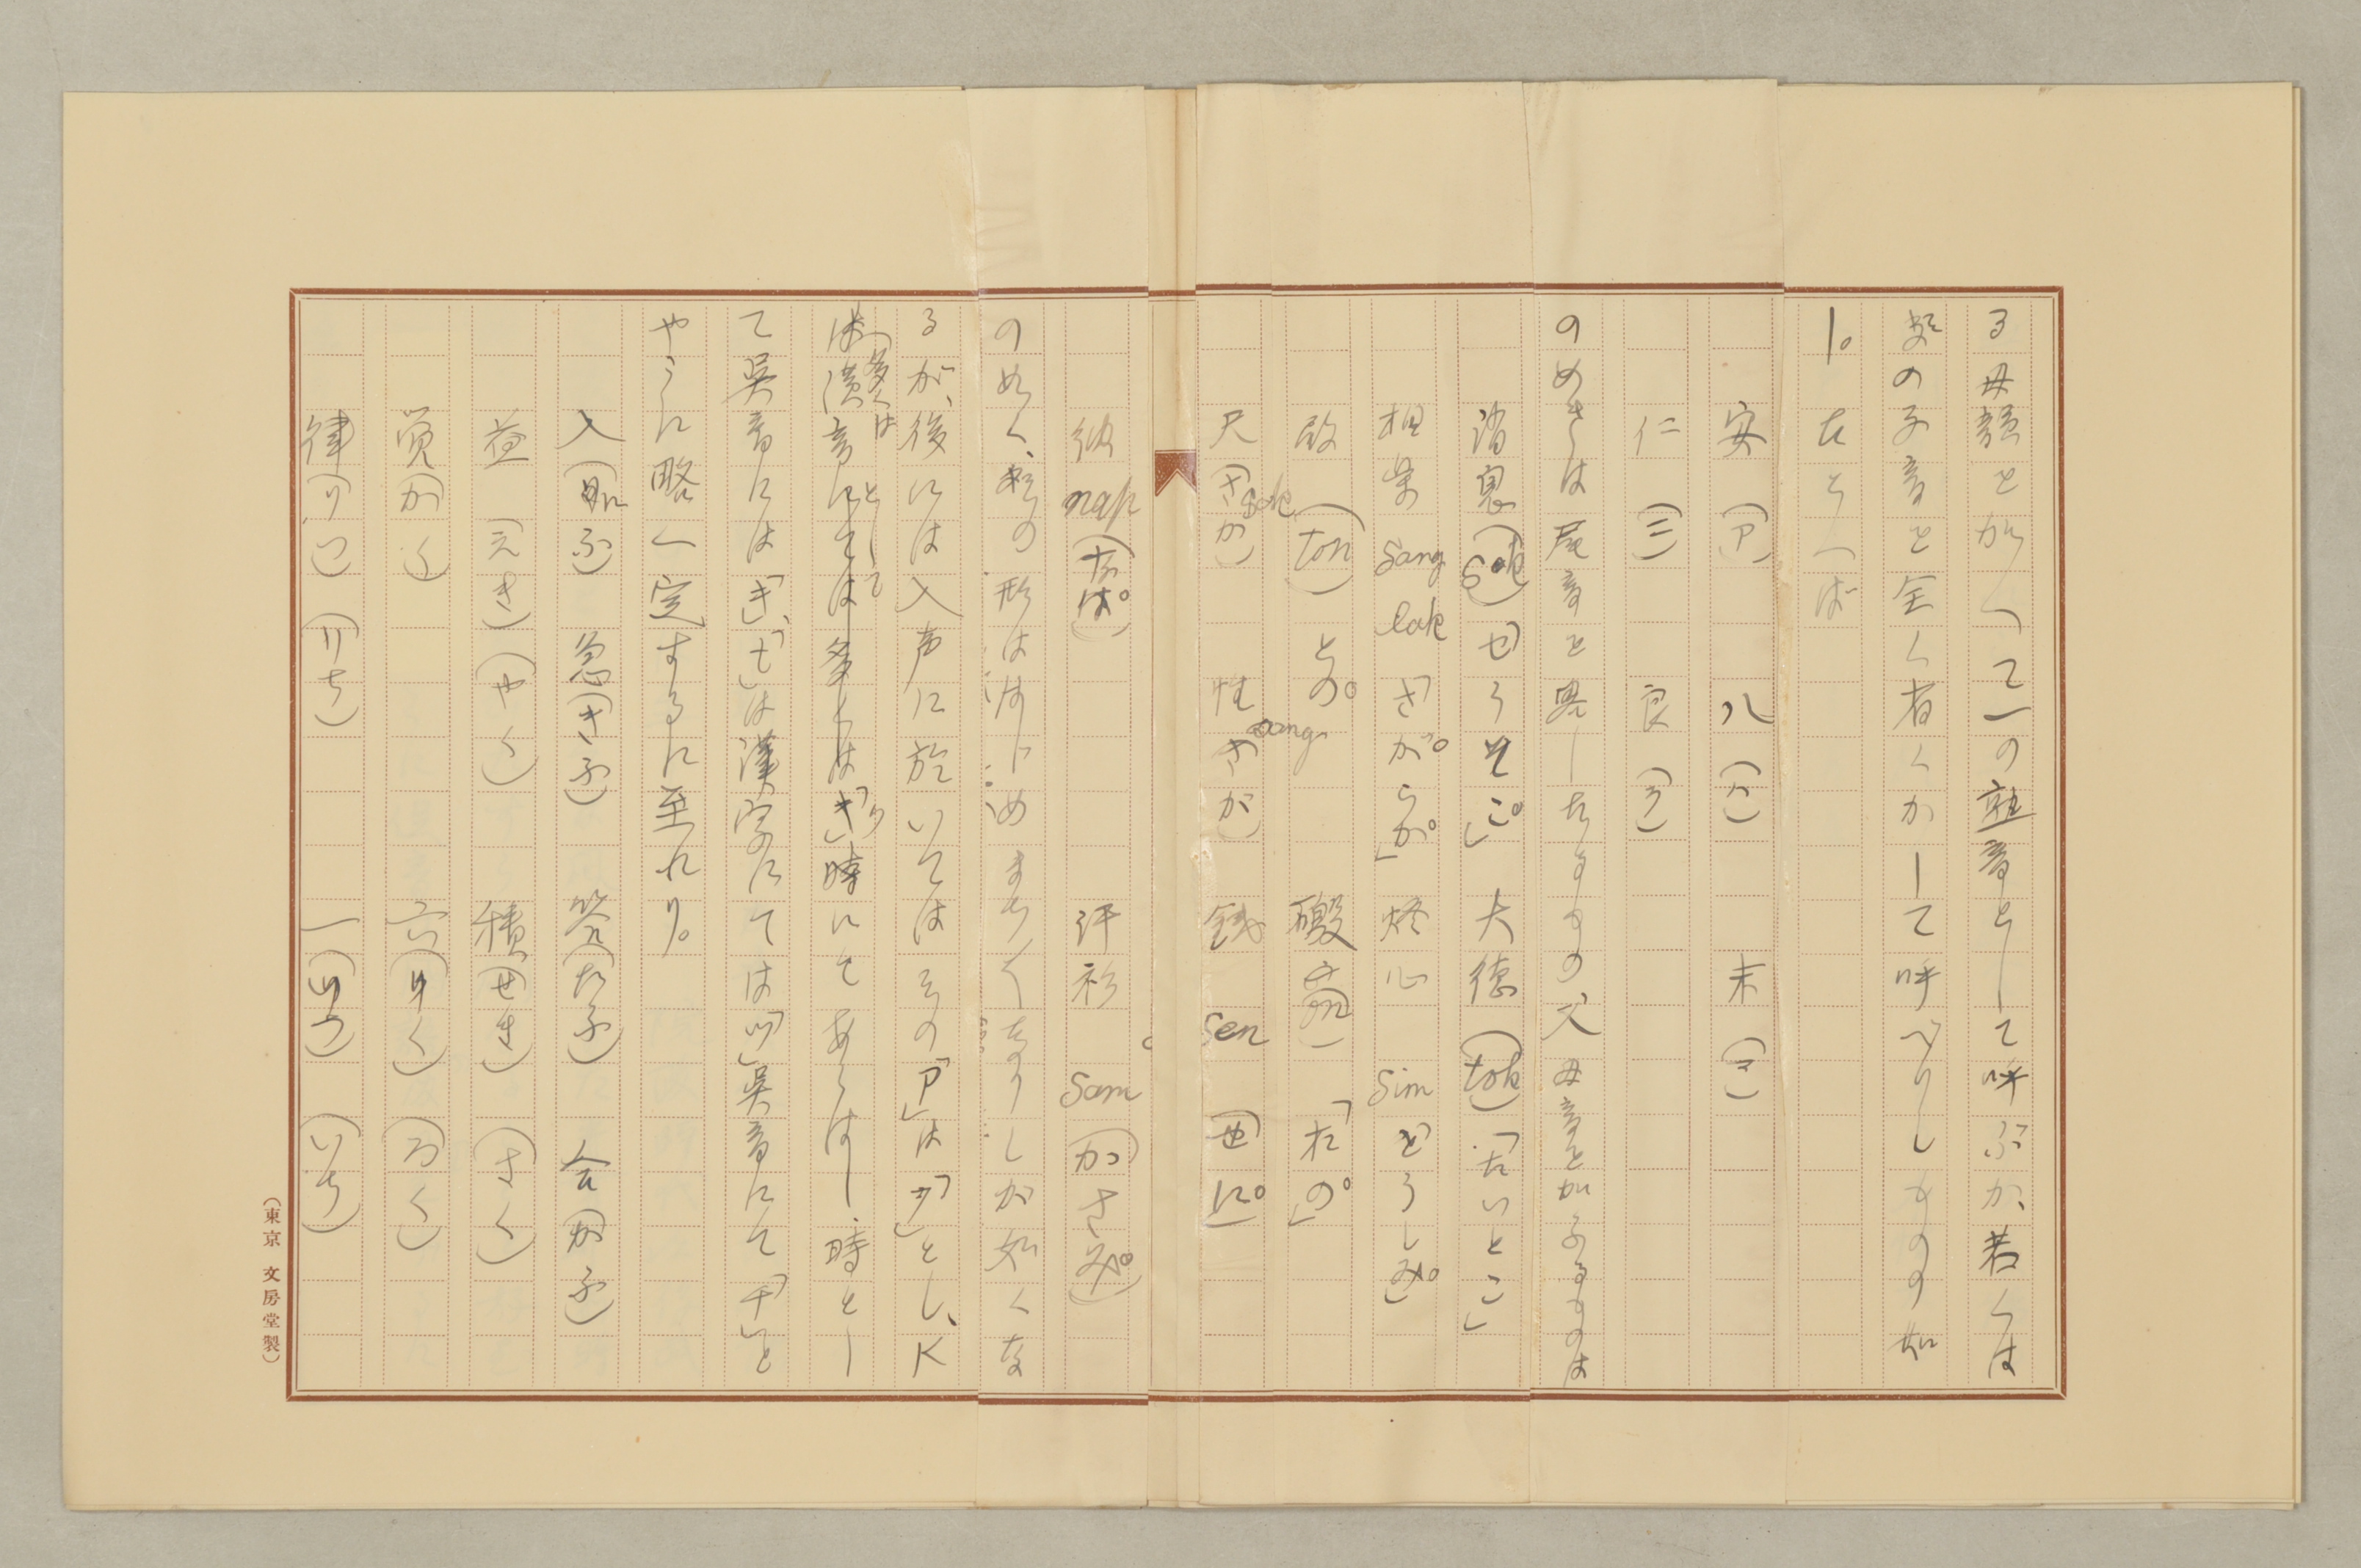 る母韻を加へて一の熟音として呼ぶか、若くは
その子音を全く省くかして呼べりしものの如
し。たとへば
安(ア) 八(ハ) 末(マ)
仁(ニ) 良(ラ)
の如きは尾音を略したるもの、又母音を加ふるものは
消息(sok)「せうそこ」 大徳(tok)「たいとこ」
相楽 sang lak「さがらか」 燈心 sim「とうしみ」
(ton) との 殿(on)「たの」
尺 sak(さか) 性 sang(さが) 銭 sen(せに)
納 nap(なぱ) 汗衫 sam(かさみ)
の如く、その形ははじめまち〳〵なりしが如くな
るが、後には入声に於いてはその「P」は「フ」とし、K
は漢音にては多くは「き」時にてあらはし、時とし
多くは
として
て呉音には「き」、「く」は漢字にては「ツ」呉音にて「チ」と
やうに略〻定するに至れり。
入(ふ) 急(きふ) 答(たふ) 合(がふ)
益(えき)(やく) 積(せき)(さく)
覚(かく) 六(りく)(ろく)
律(りつ)(りち) 一(いつ)(いち)
(東京 文房堂製)